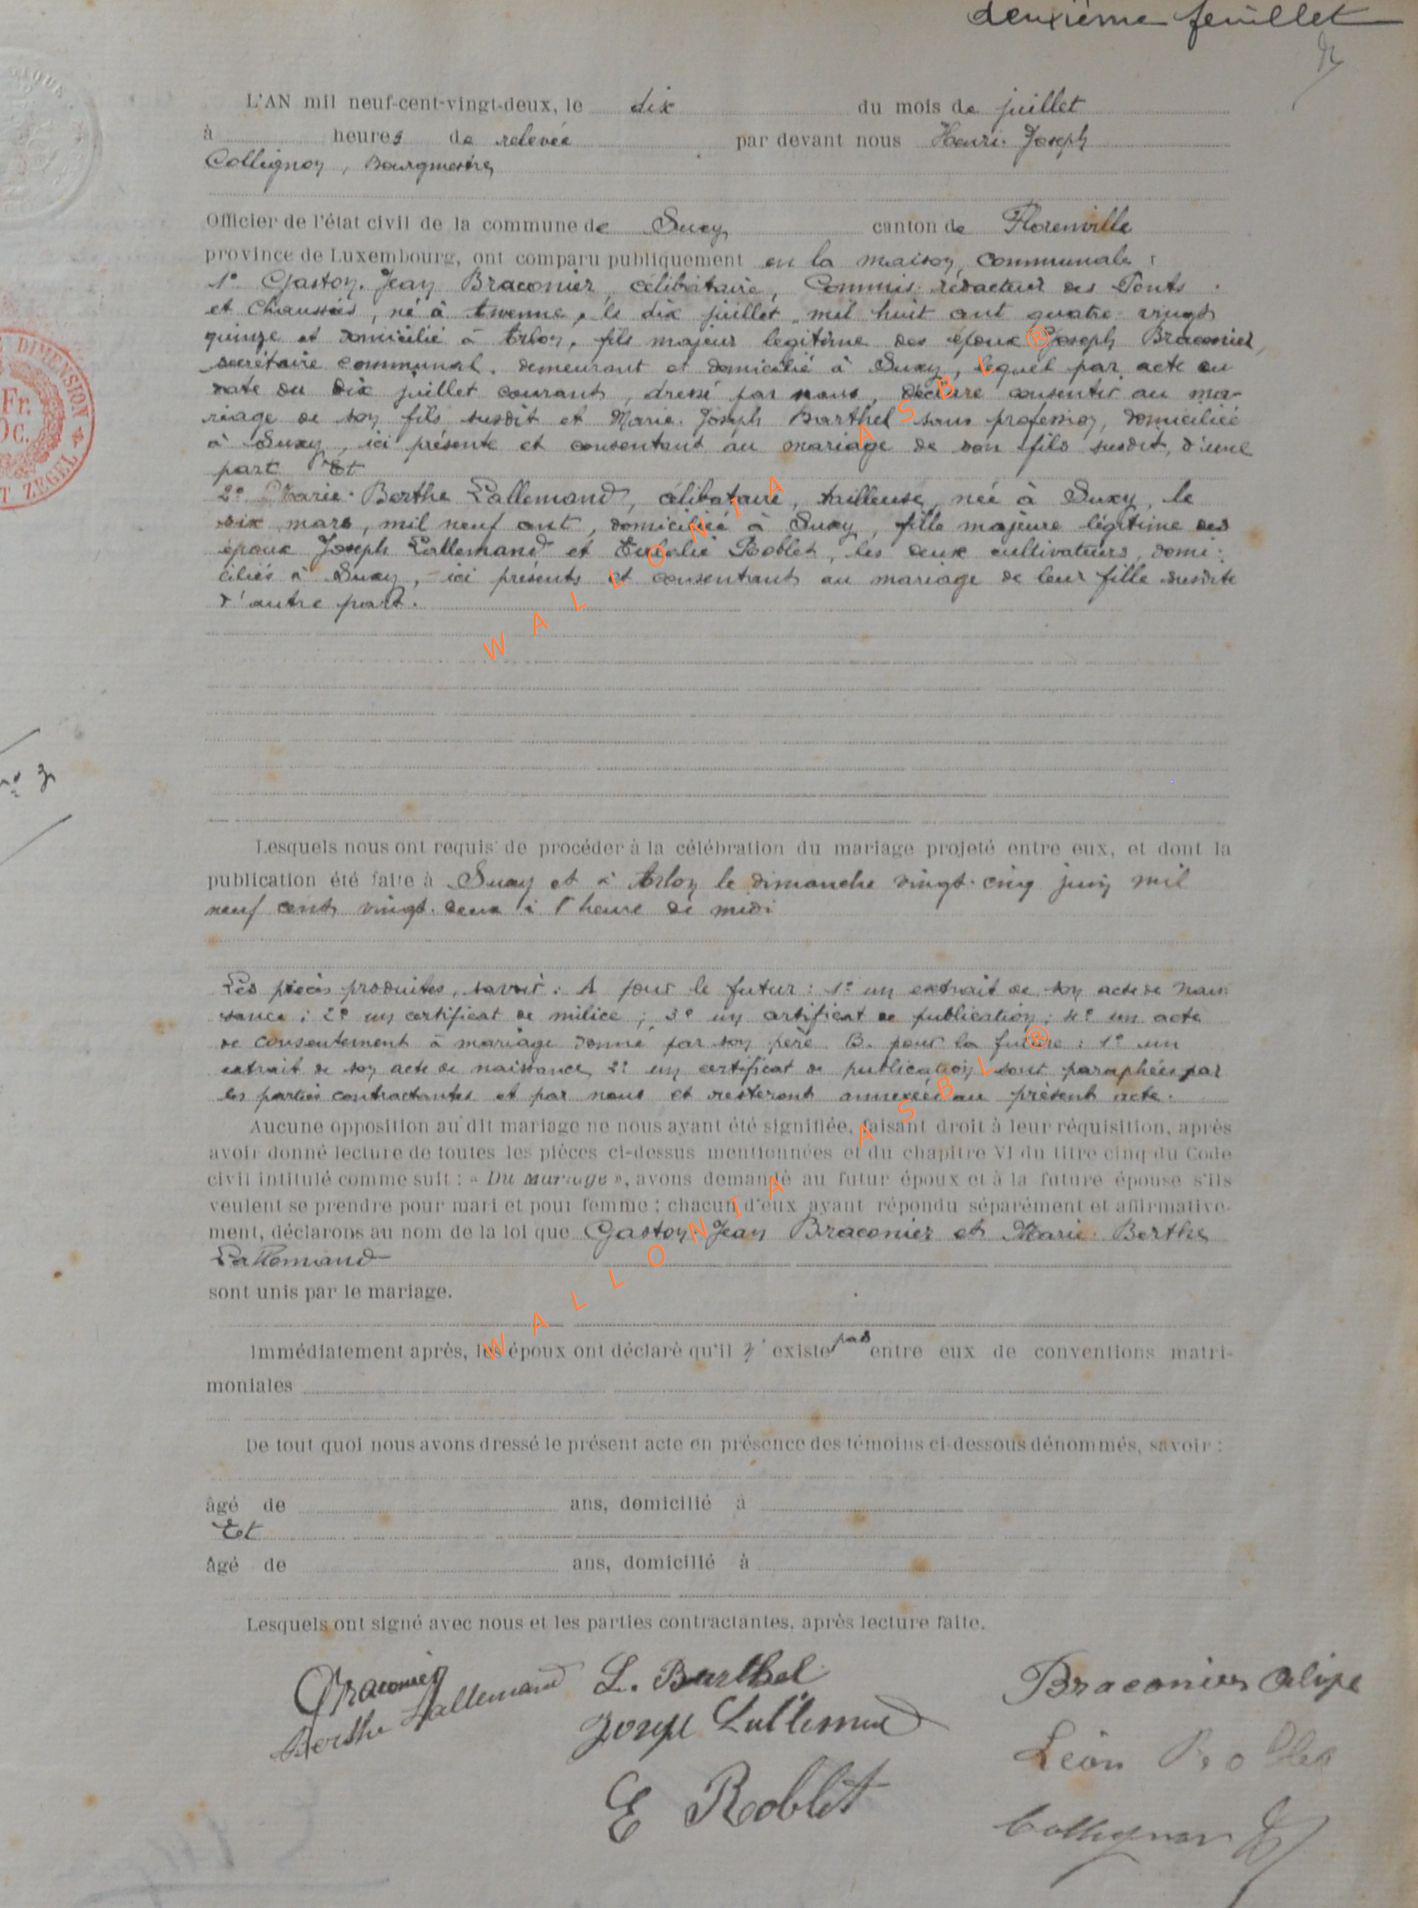 deuxième feuillet
L'AN mil neuf-cent-vingt-deux, le dix du mois de juillet
à heures de relevée par devant nous Henri-Joseph
Collignon, Bourgmestre
Officier de l'état civil de la commune de Suxy canton de Florenville
province de Luxembourg, ont comparu publiquement en la maison communale :
1° Gaston-Jean Braconier, célibataire, Commis-rédacteur des Ponts
et Chaussées, né à le dix juillet mil huit cent quatre-vingt
quinze et domicilié à Arlon, fils majeur légitime des époux Joseph Braconier,
secrétaire communal, demeurant et domicilié à Suxy, lequel par acte en
date du dix juillet courant, dressé par nous, déclare consentir au ma-
riage de son fils susdit et Marie-Joseph Barthel sans profession, domiciliée
à Suxy, ici présente et consentant au mariage de son fils susdit, d'une
part Et
2° Marie-Berthe Lallemand, célibataire, tailleuse, née à Suxy, le
six mars, mil neuf cent, domiciliée à Suxy, fille majeure légitime des
époux Joseph Lallemand et Eulalie Roblet, les deux cultivateurs, domi-
ciliés à Suxy, ici présents et consentants au mariage de leur fille susdite
d'autre part.
n° 3
Lesquels nous ont requis de procéder à la célébration du mariage projeté entre eux, et dont la
publication été faite à Suxy et à Arlon le dimanche vingt-cinq juin mil
neuf cent vingt-deux à l'heure de midi
Les pièces produites, savoir : A pour le futur : 1° un extrait de son acte de nais-
sance ; 2° un certificat de milice ; 3° un certificat de publication ; 4° un acte
de consentement à mariage donné par son père. B. pour la future : 1° un
extrait de son acte de naissance, 2° un certificat de publication sont paraphées par
les parties contractantes et par nous et resteront annexées au présent acte.
Aucune opposition au dit mariage ne nous ayant été signifiée, faisant droit à leur réquisition, après
avoir donné lecture de toutes les pièces ci-dessus mentionnées et du chapitre VI du titre cinq du Code
civil intitulé comme suit : « Du Mariage », avons demandé au futur époux et à la future épouse s'ils
veulent se prendre pour mari et pour femme ; chacun d'eux ayant répondu séparément et affirmative-
ment, déclarons au nom de la loi que Gaston-Jean Braconier et Marie-Berthe
Lallemand
sont unis par le mariage.
Immédiatement après, les époux ont déclaré qu'il n'existe pas entre eux de conventions matri-
moniales
De tout quoi nous avons dressé le présent acte en présence des témoins ci-dessous dénommés, savoir :
âgé de ans, domicilié à
Et
âgé de ans, domicilié à
Lesquels ont signé avec nous et les parties contractantes, après lecture faite.
GBraconier L. Barthel Braconier Alipe
Berthe Lallemand Joseph Lallemand Léon Roblet
E Roblet Collignon
WALLONIA ASBL ®
WALLONIA ASBL ®
DIMENSION
Fr.
ZEGEL